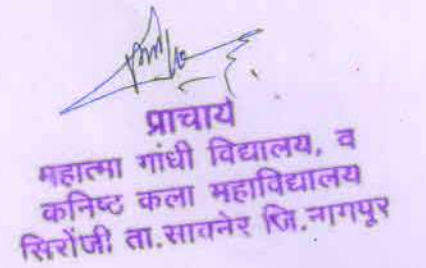 प्राचार्य
महात्मा गांधी विद्यालय, व
कनिष्ट कला महाविद्यालय
सिरोंजी ता.सावनेर जि.नागपूर